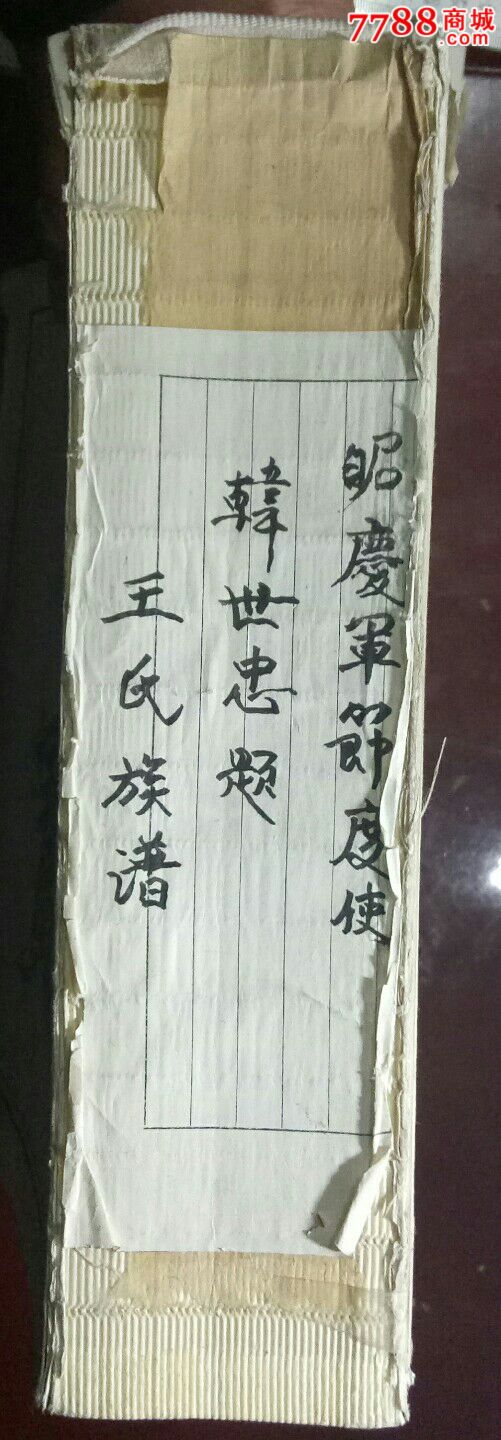 7788商城
.com
昭慶軍節度使
韓世忠题
王氏族谱